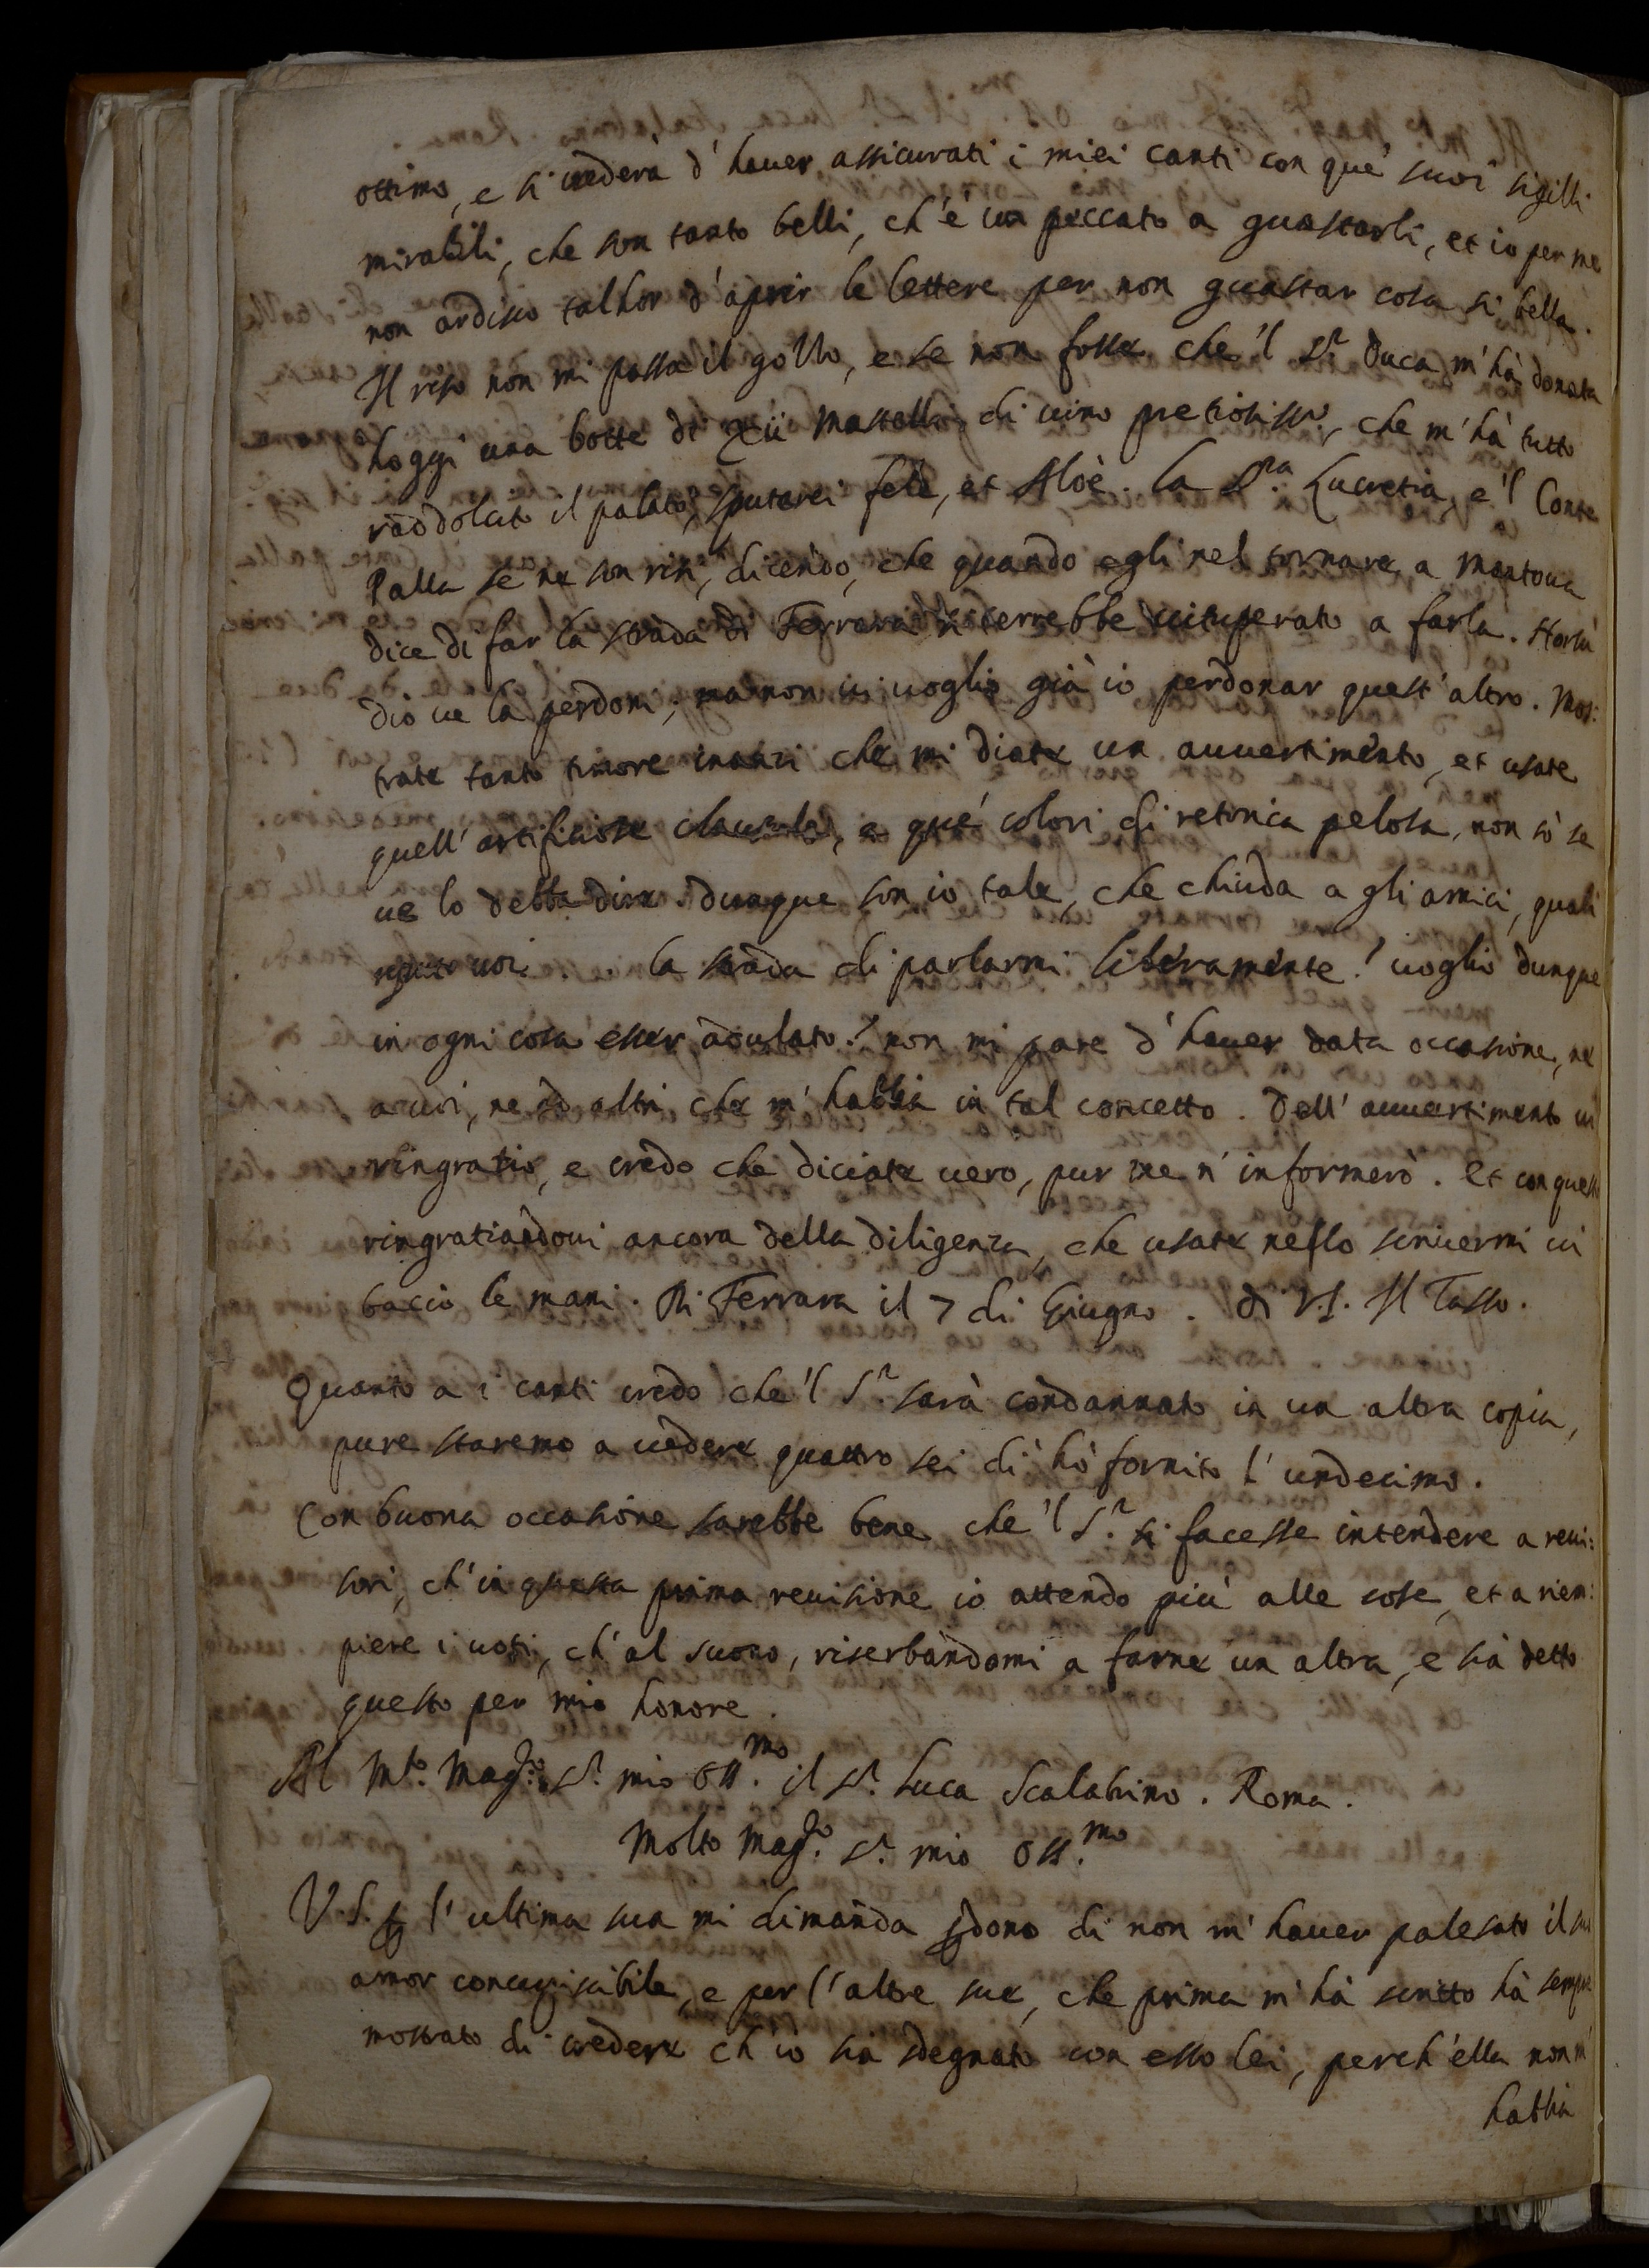 ottimo, e si crederà d'hauer assicurati i miei canti con que' suoi sigilli
mirabili, che son tanto belli, ch'è un peccato a guastarli, et io per me
non ardisco talhor d'aprir le lettere per non guastar cosa si bella.
Il riso non mi passa il gozzo, e se non fosse che'l S.r Duca m'hà donata
hoggi una botte di xii Mastelli di uino pretiosiss.o, che m'hà tutto
raddolcito il palato, sputarei fele, et Aloè. La S.ra Lucretia, e'l Conte
Palla se ne son risi, dicendo, che quando egli nel tornare a Mantoua
dice di far la strada di Ferrara si terrebbe uituperato a farla. Horsù
Dio ue la perdoni; ma non ui uoglio già io perdonar quest'altro. Mos:
trate tanto timore inanzi che mi diate un auuertimento, et usate
quell'artificiose clausule, e que' colori di retorica pelosa, non sò se
ue lo debba dire. Dunque son io tale, che chiuda a gli amici, quali
reputo uoi la strada di parlarmi liberamente? uoglio dunque
in ogni cosa esser adulato? non mi pare d'hauer data occasione, ne
a uoi, ne ad altri che m'habbia in tal concetto. Dell'auuertimento ui
ringratio, e credo che diciate uero, pur me n'informerò. Et con questo
ringratiandoui ancora della diligenza, che usate nello scriuermi ui
bacio le mani. Di Ferrara il 7 di Giugno. Di V.S. Il Tasso.
Quanto a i canti credo che'l S.r sarà condannato in un altra copia,
pure staremo a uedere quattro sei dì hò fornito l'undecimo.
Con buona occasione sarebbe bene che'l S.r si facesse intendere a reui:
sori, ch'in questa prima reuisione io attendo più alle cose, et a riem:
piere i uoti, ch'al suono, riserbandomi a farne un altra, e sia detto
questo per mio honore.
Al M.to Mag.co S.r mio Oss.mo il S.r Luca Scalabrino. Roma.
Molto Mag.co S.r mio Oss.mo
V.S. ꝑ l'ultima sua mi dimanda ꝑdono di non m'hauer palesato il suo
amor concupiscibile, e per l'altre sue, che prima m'hà scritto hà sempre
mostrato di credere ch'io sia sdegnato con esso lei, perch'ella non m'
habbia